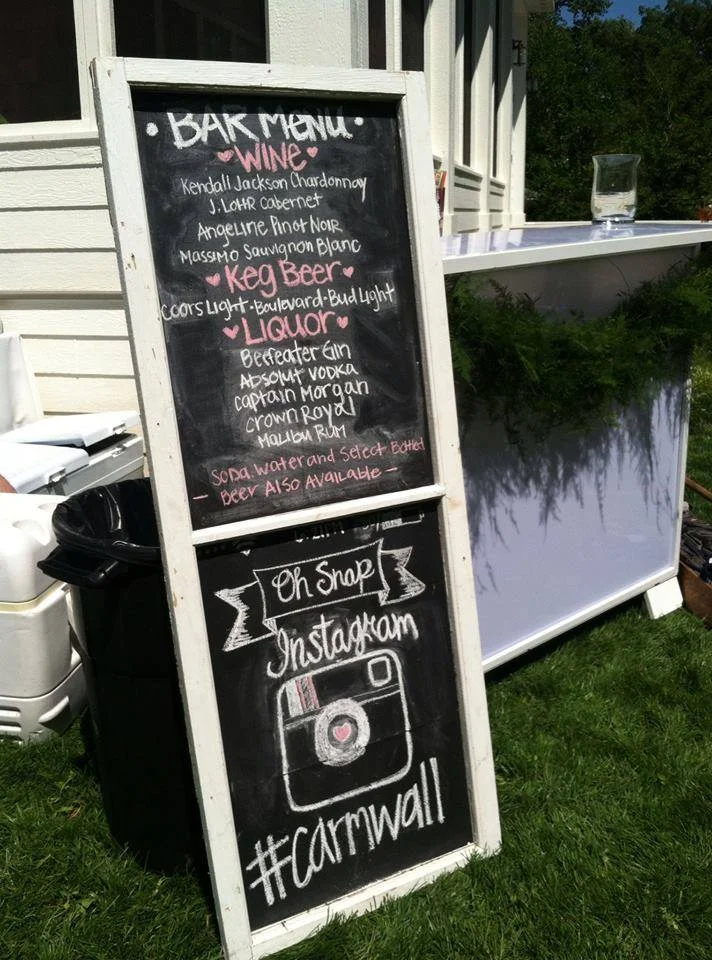 • BAR MENU •
WINE
Kendall Jackson Chardonnay
J. LOHR Cabernet
Angeline Pinot Noir
Massimo Sauvignon Blanc
Keg Beer
Coors Light - Boulevard - Bud Light
Liquor
Beefeater Gin
Absolut Vodka
Captain Morgan
Crown Royal
Malibu Rum
Soda, Water and Select Bottled
— Beer Also Available —
Oh Snap
Instagram
#carmwall